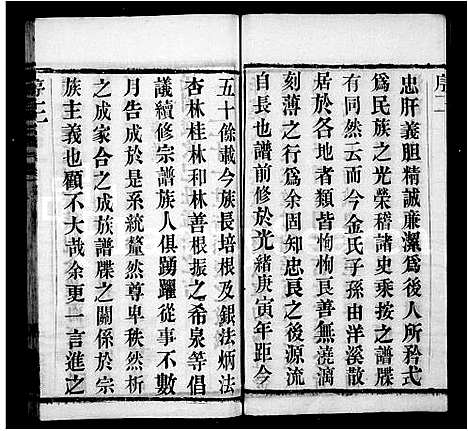 序二
忠肝義胆精誠廉潔爲後人所矜式
爲民族之光榮稽諸史乘按之譜牒
有同然云而今金氏子孫由洋溪散
居於各地者類皆恂恂良善無澆漓
刻薄之行爲余固知忠良之後源流
自長也譜前修於光緒庚寅年距今
五十餘載今族長培根及銀法炳法
杏林桂林和林善根振之希泉等倡
議續修宗譜族人俱踴躍從事不數
月告成於是系統釐然尊卑秩然析
之成家合之成族譜牒之關係於宗
族主義也顧不大哉余更一言進之